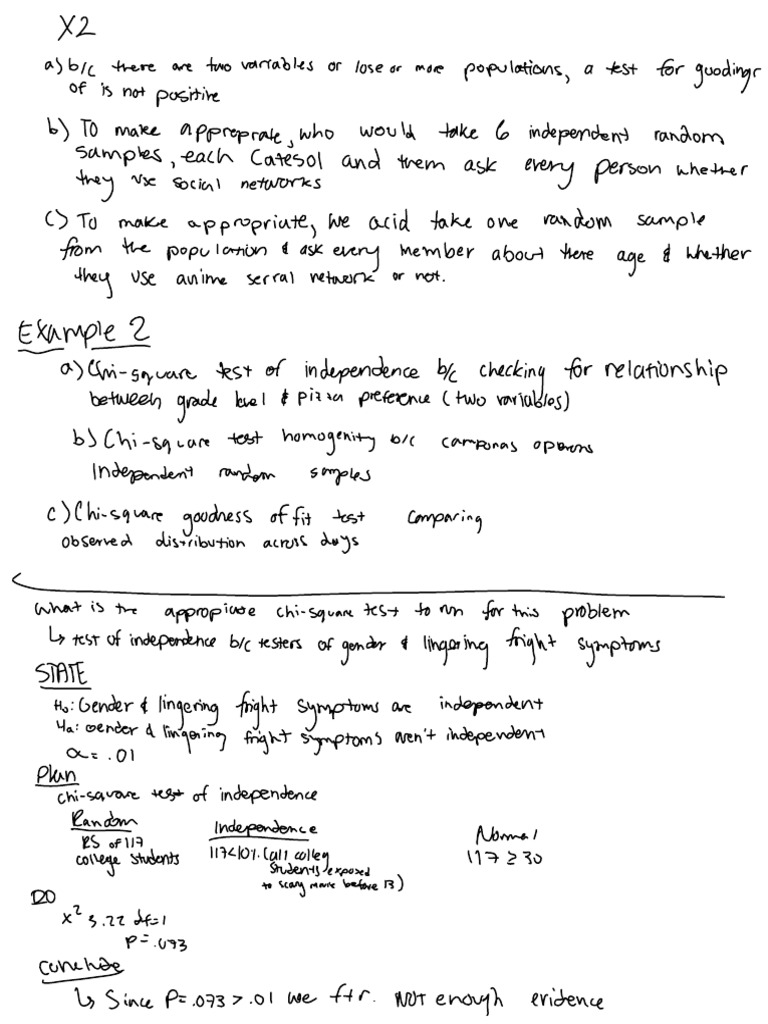 X2
a) b/c there are two variables or lose or more populations, a test for guodingr
of is not positive
b) To make appreprate, who would take 6 independent random
samples, each Catesol and them ask every person whether
they use social networks
c) To make appropriate, we acid take one random sample
from the population & ask every member about there age & whether
they use anime serral network or not.
Example 2
a) Chi-square test of independence b/c checking for relationship
between grade level & pizza preference (two variables)
b) Chi-square test homogenity b/c
Independent random samples
c) Chi-square goodness of fit test comparing
observed distribution across days
What is the appropiate chi-square test to run for this problem
↳ test of independence b/c testers of gender & lingering fright symptoms
STATE
H₀: Gender & lingering fright symptoms are independent
Ha: Gender & lingering fright symptoms aren't independent
α = .01
Plan
chi-square test of independence
Random Independence Normal
RS of 117 117<10% (all colleg 117 ≥ 30
college students students exposed
to scary movie before 13)
DO
x² 3.22 df=1
P = .073
Conclude
↳ Since P = .073 > .01 we ftr. Not enough evidence